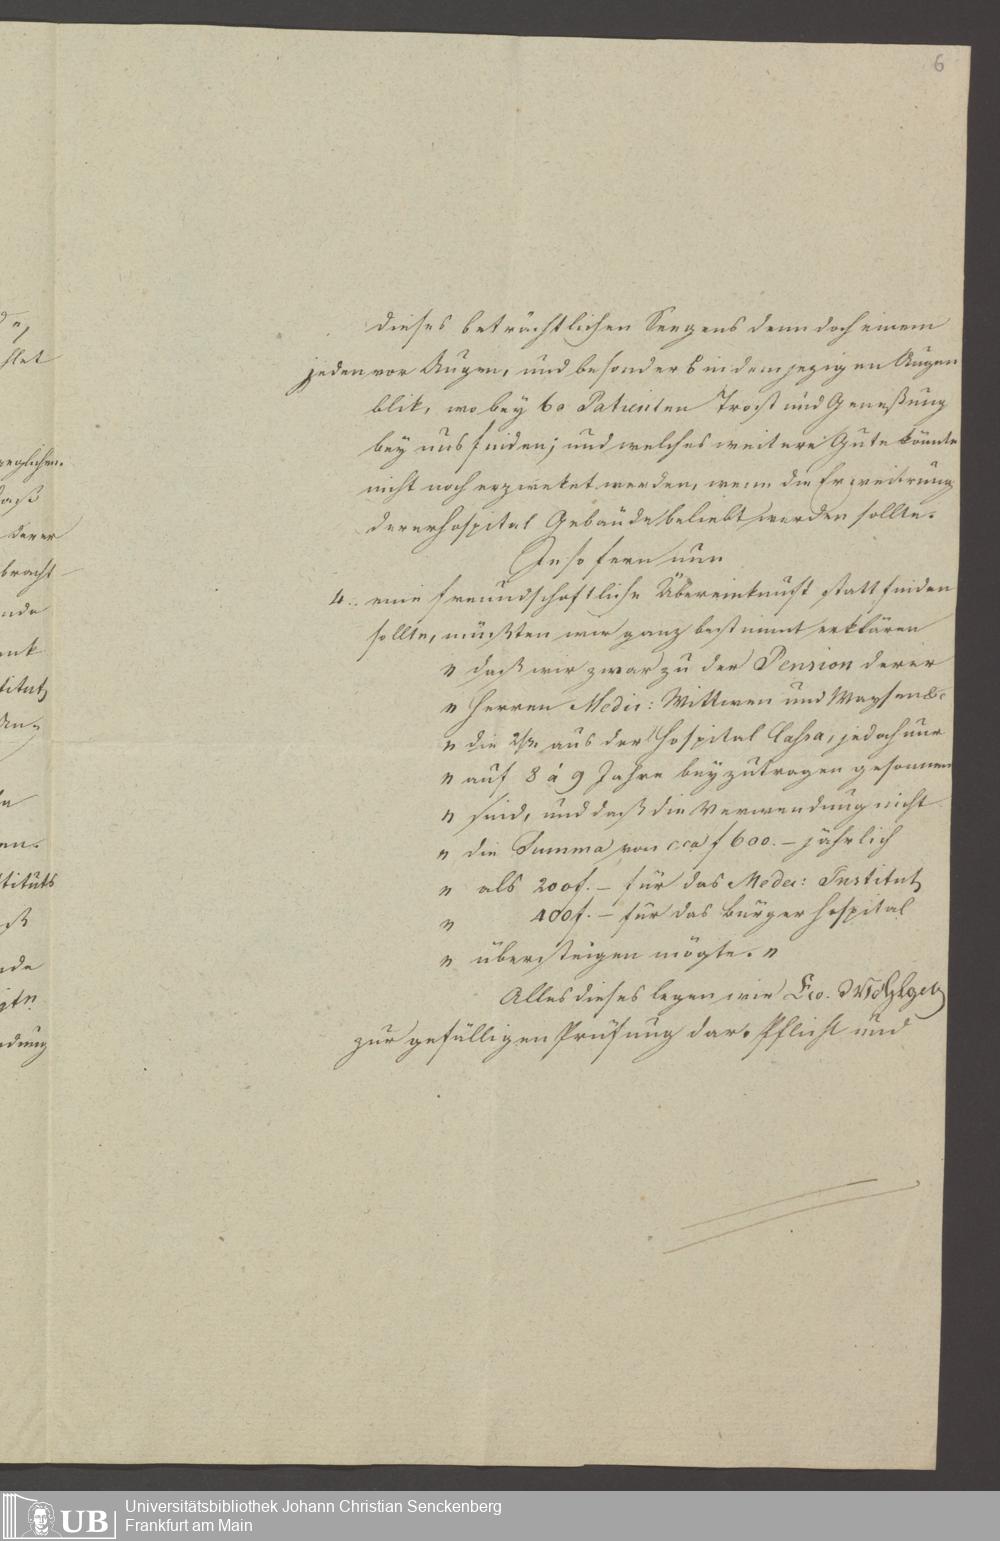 6
dieses beträchtlichen Seegens denn doch einem
jeden vor Augen, und besonders in dem jezigen Augen
blik, wo bey 60 Patienten Trost und Geneßung
bey uns finden; und welches weitere Gute könnte
nicht noch erzweket werden, wenn die Erweitrung
derer Hospital Gebäude beliebt werden sollte.
In so fern nun
4.. eine freundschaftliche Übereinkunft statt finden
sollte, müßten wir ganz bestimmt erklären
„ daß wir zwar zu der Pension derer
„ Herren Medic: Wittwen und Waysen &c
„ die 2/3 aus der Hospital Cassa, jedoch nur
„ auf 8 à 9 Jahre beyzutragen gesonnen
„ sind, und daß die Verwendung nicht
„ die Summa von cca f 600. – jährlich
„ als 200f. – für das Medic: Institut
„ 400f. – für das Bürger Hospital
„ übersteigen mögte. „
Alles dieses legen wir Ew.
zur gefälligen Prüfung dar. Pflicht und
hlet
daß
derer
bracht
ank
titut
en.
tituts
ndung
UB
Universitätsbibliothek Johann Christian Senckenberg
Frankfurt am Main